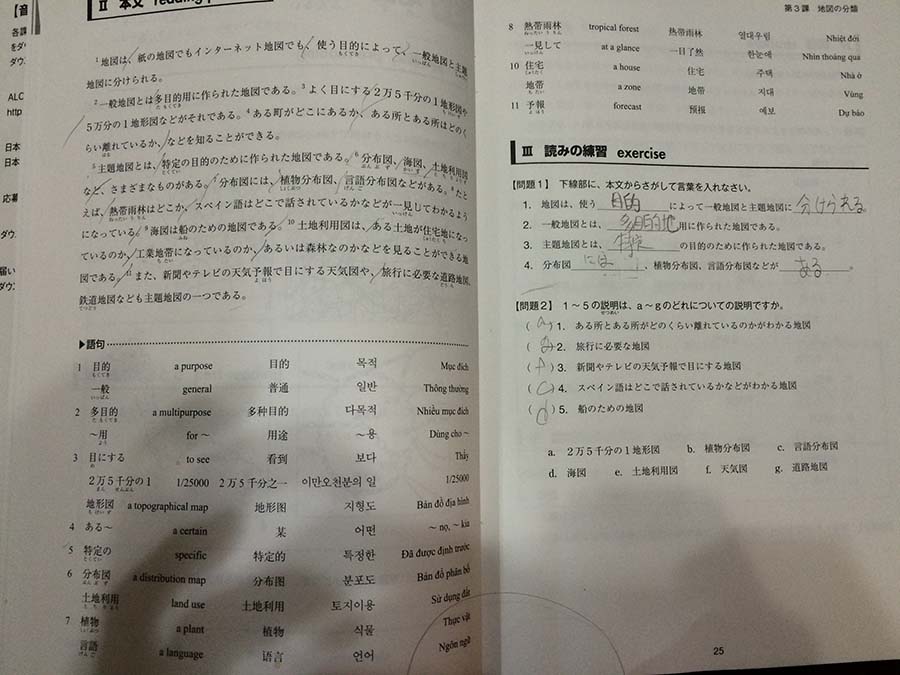 Ⅱ 本文 reading p
¹地図は、紙の地図でもインターネット地図でも、使う目的によって、一般地図と主題
地図に分けられる。
²一般地図とは多目的用に作られた地図である。³よく目にする2万5千分の1地形図や
5万分の1地形図などがそれである。⁴ある町がどこにあるか、ある所とある所はどのく
らい離れているか、などを知ることができる。
⁵主題地図とは、特定の目的のために作られた地図である。⁶分布図、海図、土地利用図
など、さまざまなものがある。⁷分布図には、植物分布図、言語分布図などがある。⁸たと
えば、熱帯雨林はどこか、スペイン語はどこで話されているかなどが一見してわかるよう
になっている。⁹海図は船のための地図である。¹⁰土地利用図は、ある土地が住宅地になっ
ているのか、工業地帯になっているのか、あるいは森林なのかなどを見ることができる地
図である。¹¹また、新聞やテレビの天気予報で目にする天気図や、旅行に必要な道路地図、
鉄道地図なども主題地図の一つである。
▶語句
1 目的 a purpose 目的 목적 Mục đích
一般 general 普通 일반 Thông thường
2 多目的 a multipurpose 多种目的 다목적 Nhiều mục đích
～用 for～ 用途 ～용 Dùng cho～
3 目にする to see 看到 보다 Thấy
2万5千分の1 1/25000 2万5千分之一 이만오천분의 일 1/25000
地形図 a topographical map 地形图 지형도 Bản đồ địa hình
4 ある～ a certain 某 어떤 ～ nọ, ～ kia
5 特定の specific 特定的 특정한 Đã được định trước
6 分布図 a distribution map 分布图 분포도 Bản đồ phân bố
土地利用 land use 土地利用 토지이용 Sử dụng đất
7 植物 a plant 植物 식물 Thực vật
言語 a language 语言 언어 Ngôn ngữ
第3課 地図の分類
8 熱帯雨林 tropical forest 热带雨林 열대우림 Nhiệt đới
一見して at a glance 一目了然 한눈에 Nhìn thoáng qua
10 住宅 a house 住宅 주택 Nhà ở
地帯 a zone 地带 지대 Vùng
11 予報 forecast 预报 예보 Dự báo
Ⅲ 読みの練習 exercise
【問題1】 下線部に、本文からさがして言葉を入れなさい。
1. 地図は、使う 目的 によって一般地図と主題地図に 分けられる
2. 一般地図とは、多目的地 用に作られた地図である。
3. 主題地図とは、特定 の目的のために作られた地図である。
4. 分布図 には 、植物分布図、言語分布図などが ある 。
【問題2】 1～5の説明は、a～gのどれについての説明ですか。
(a) 1. ある所とある所がどのくらい離れているのかがわかる地図
(g) 2. 旅行に必要な地図
(f) 3. 新聞やテレビの天気予報で目にする地図
(c) 4. スペイン語はどこで話されているかなどがわかる地図
(d) 5. 船のための地図
a. 2万5千分の1地形図 b. 植物分布図 c. 言語分布図
d. 海図 e. 土地利用図 f. 天気図 g. 道路地図
25